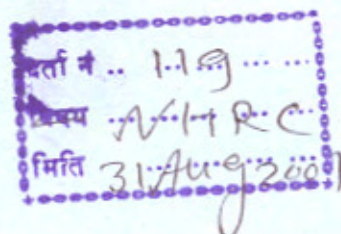 दर्ता नं .. 119
विषय ... NHRC
मिति 31 Aug 2001